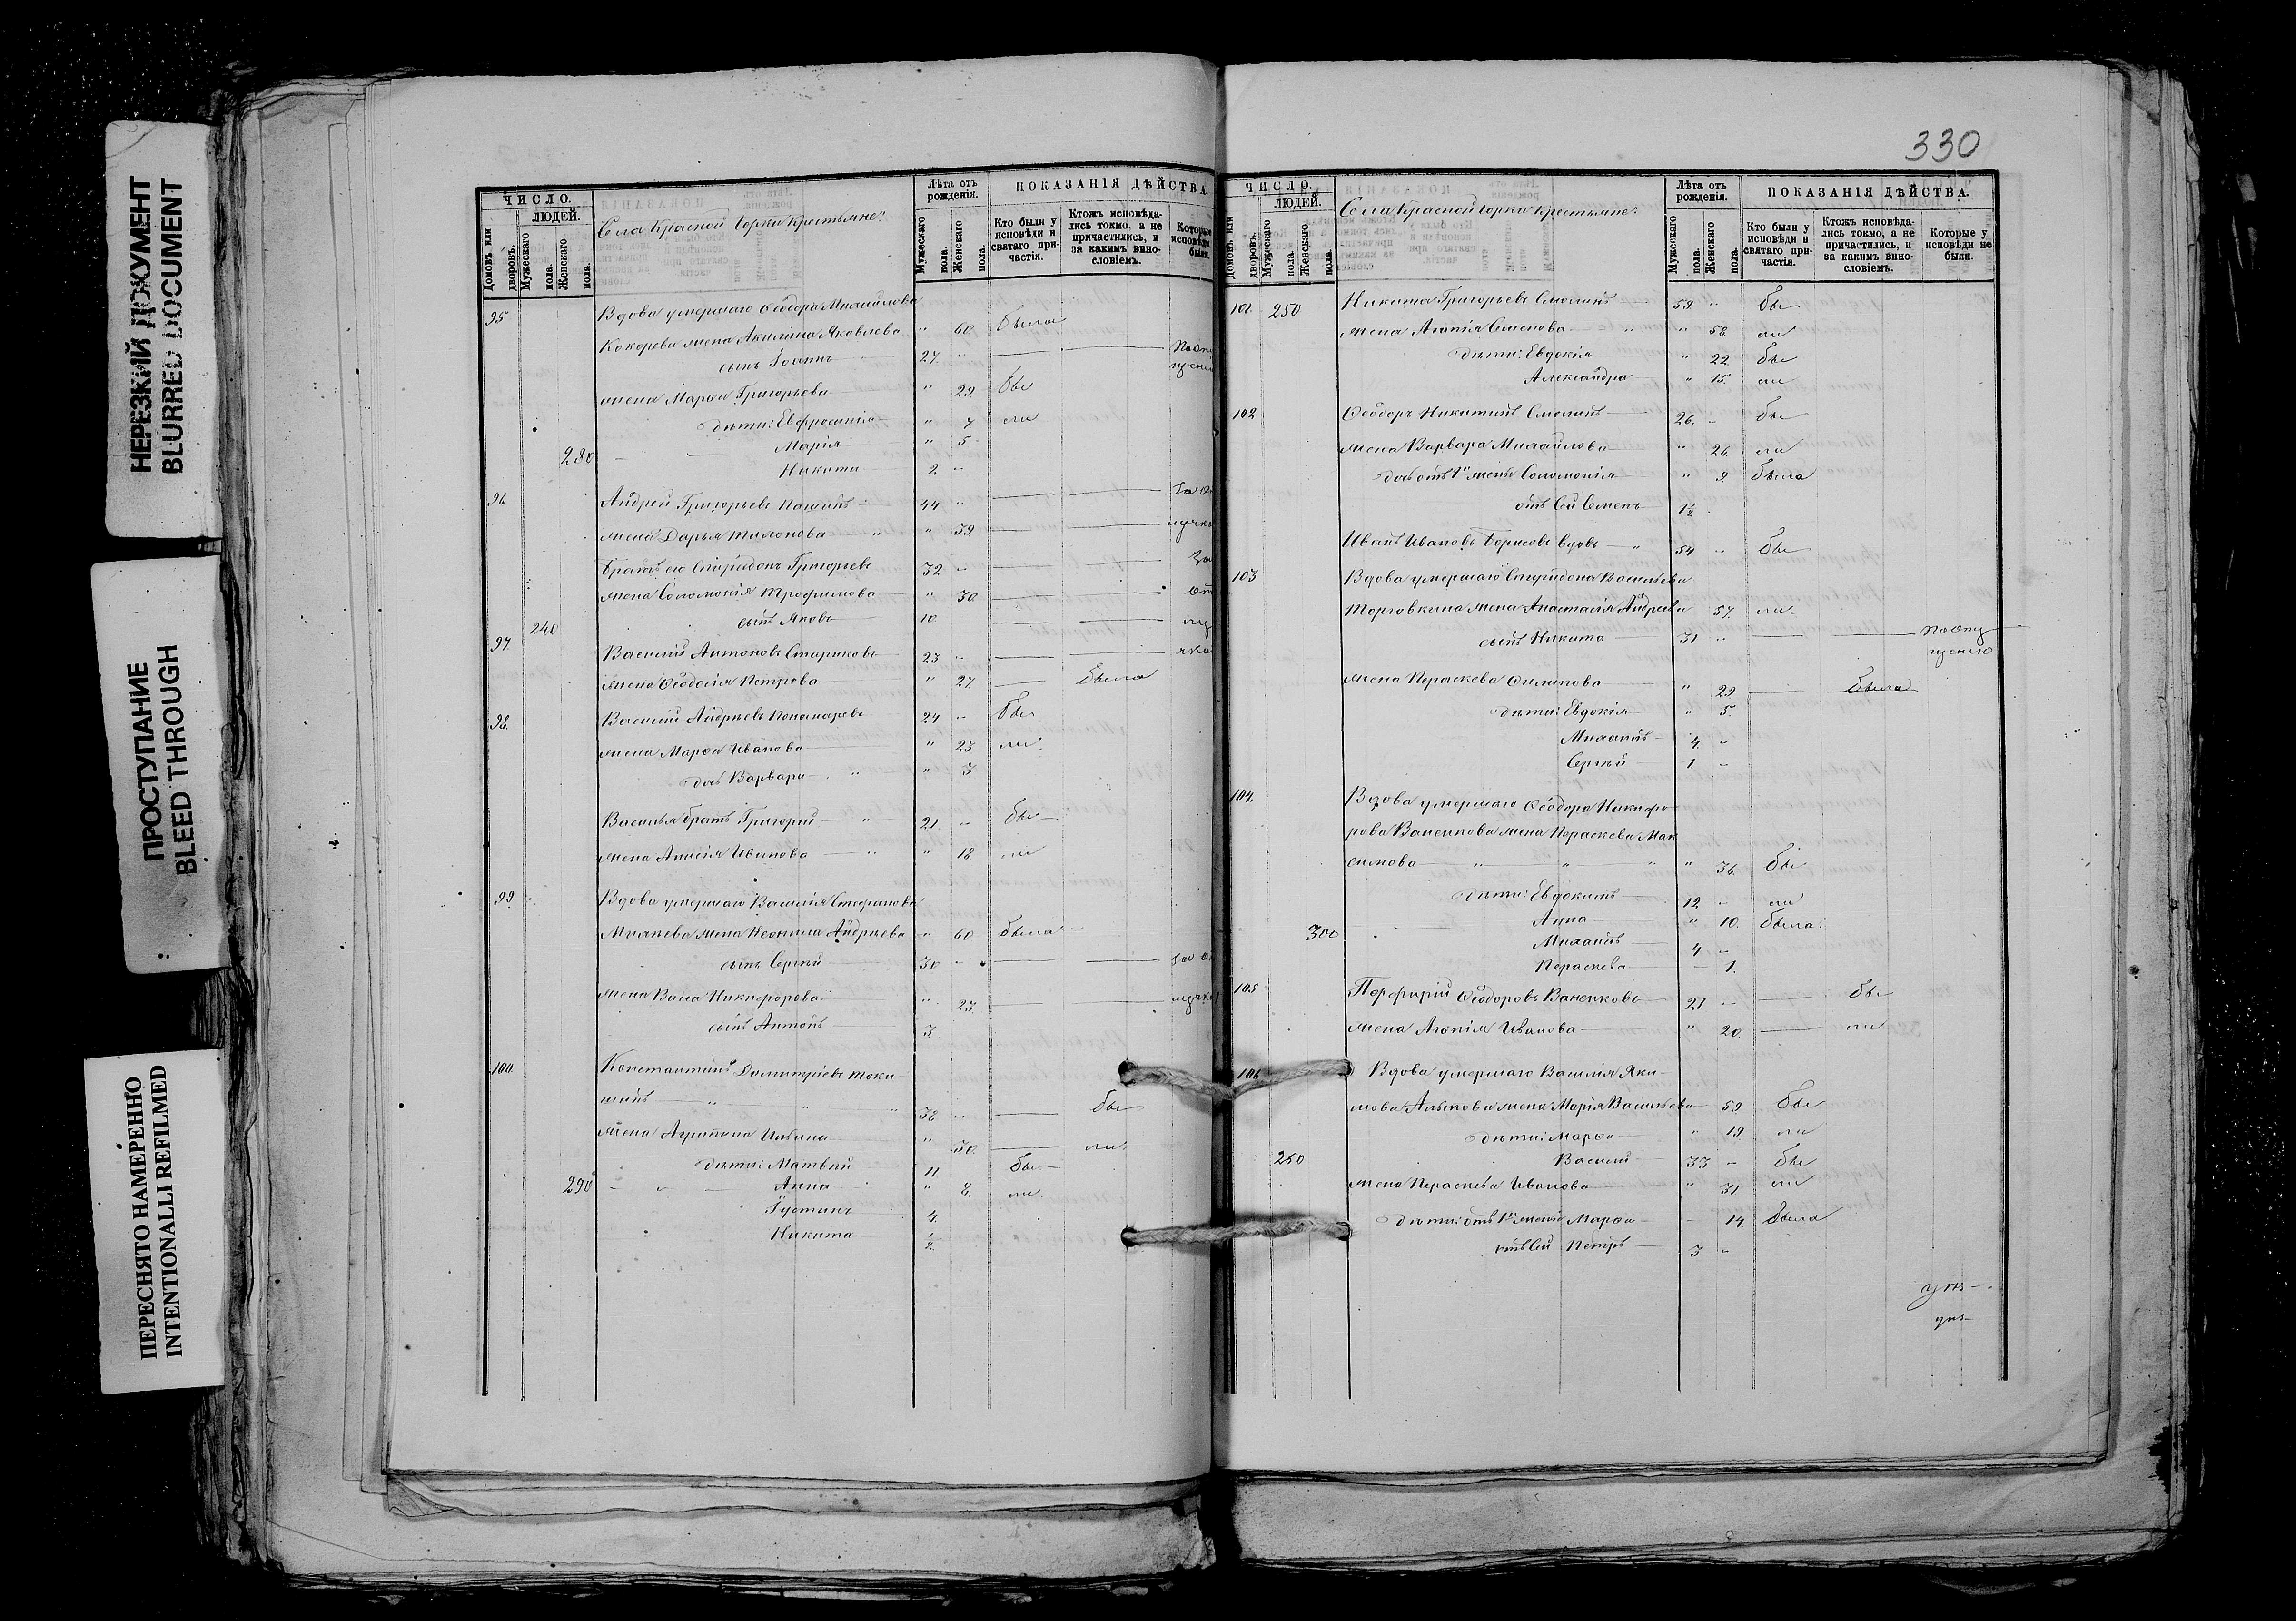 НЕРЕЗКИЙ ДОКУМЕНТ
BLURRED DOCUMENT
ПРОСТУПАНИЕ
BLEED THROUGH
ПЕРЕСНЯТО НАМЕРЕННО
INTENTIONALLI REFILMED
ЧИСЛО.
ЛЮДЕЙ.
Домовъ или дворовъ.
Мужескаго пола.
Женскаго пола.
Села Красной Горки крестьяне:
Лѣта отъ рожденія.
Мужескаго пола.
Женскаго пола.
ПОКАЗАНІЯ ДѢЙСТВА.
Кто были у исповѣди и святаго причастія.
Ктожъ исповѣдались токмо, а не причастились, и за какимъ винословіемъ.
Которые исповѣди были.
95 Вдова умершаго Ѳеодора Михайлова
Кокорева жена Акилина Яковлева " 60 была
сынъ Іоаннъ 27 " По опу
щенію
жена Марѳа Григорьева " 29 бы
дѣти: Евфросинія " 7 ли
Марія " 5
280 Никита 2 "
96 Андрей Григорьевъ 44 " За от
жена Дарья " 39 лучк
братъ его Спиридонъ Григорьевъ 32 " За
жена Соломонія Трофимова " 30 от
240 сынъ Яковъ 10 лу
97 Василій Антоновъ Стариковъ 23 " чко
жена Ѳеодосія Петрова " 27 была
98 Василій Андреевъ Пономаревъ 24 " бы
жена Марѳа Иванова " 23 ли
дочь Варвара " " 3
Василья братъ Григорій " 21 " бы
жена Анисія Иванова " " 18 ли
99 Вдова умершаго Василія Стефанова
жена Неонила Андреева " 60 была
сынъ Сергѣй 30 " За от
жена Васса Никифорова " 27 лучк
сынъ Антонъ 3
100 Константинъ Димитріевъ Токи
шинъ " " " 32 " бы
жена Агрипина Ильина " 30 ли
дѣти: Матвѣй 11 бы
290 Анна " 8 ли
Густинъ 4
Никита 1/2
330
ЧИСЛО.
ЛЮДЕЙ.
Домовъ или дворовъ.
Мужескаго пола.
Женскаго пола.
Села Красной Горки крестьяне:
Лѣта отъ рожденія.
Мужескаго пола.
Женскаго пола.
ПОКАЗАНІЯ ДѢЙСТВА.
Кто были у исповѣди и святаго причастія.
Ктожъ исповѣдались токмо, а не причастились, и за какимъ винословіемъ.
Которые у исповѣди не были.
101 250 Никита Григорьевъ Смолинъ 59 " бы
жена Агапія Семенова " " 58 ли
дѣти: Евдокія " 22 бы
Александра " 15 ли
102 Ѳеодоръ Никитинъ Смолинъ 26 " бы
жена Варвара Михайлова " 26 ли
дочь отъ 1й жены Соломонія " 9 была
отъ сей Семенъ 1½
Иванъ Ивановъ Борисовъ вдовъ " 54 " бы
103 Вдова умершаго Спиридона Васильева
Торговкина жена Анастасія Андреева 57 ли
сынъ Никита 31 " По опу
щенію
жена Параскева Филипова " 29 была
дѣти: Евдокія " 5
Михаилъ 4 "
Сергѣй 1 "
104 Вдова умершаго Ѳеодора Никифо
рова Ваненкова жена Параскева Мак
симова " " " " 36 бы
дѣти: Евдокимъ 12 " ли
Анна " 10 была
300 Михаилъ 4 "
Параскева " 1
105 Порфирій Ѳеодоровъ Ваненковъ 21 " бы
жена Агапія Иванова " 20 ли
106 Вдова умершаго Василія Яки
мова жена Марія Васильева 59 бы
дѣти: Марѳа " 19 ли
260 Василій 33 " бы
жена Параскева Иванова " 31 ли
дѣти: отъ 1й жены Марѳа " 14 была
отъ сей Петръ 3 "